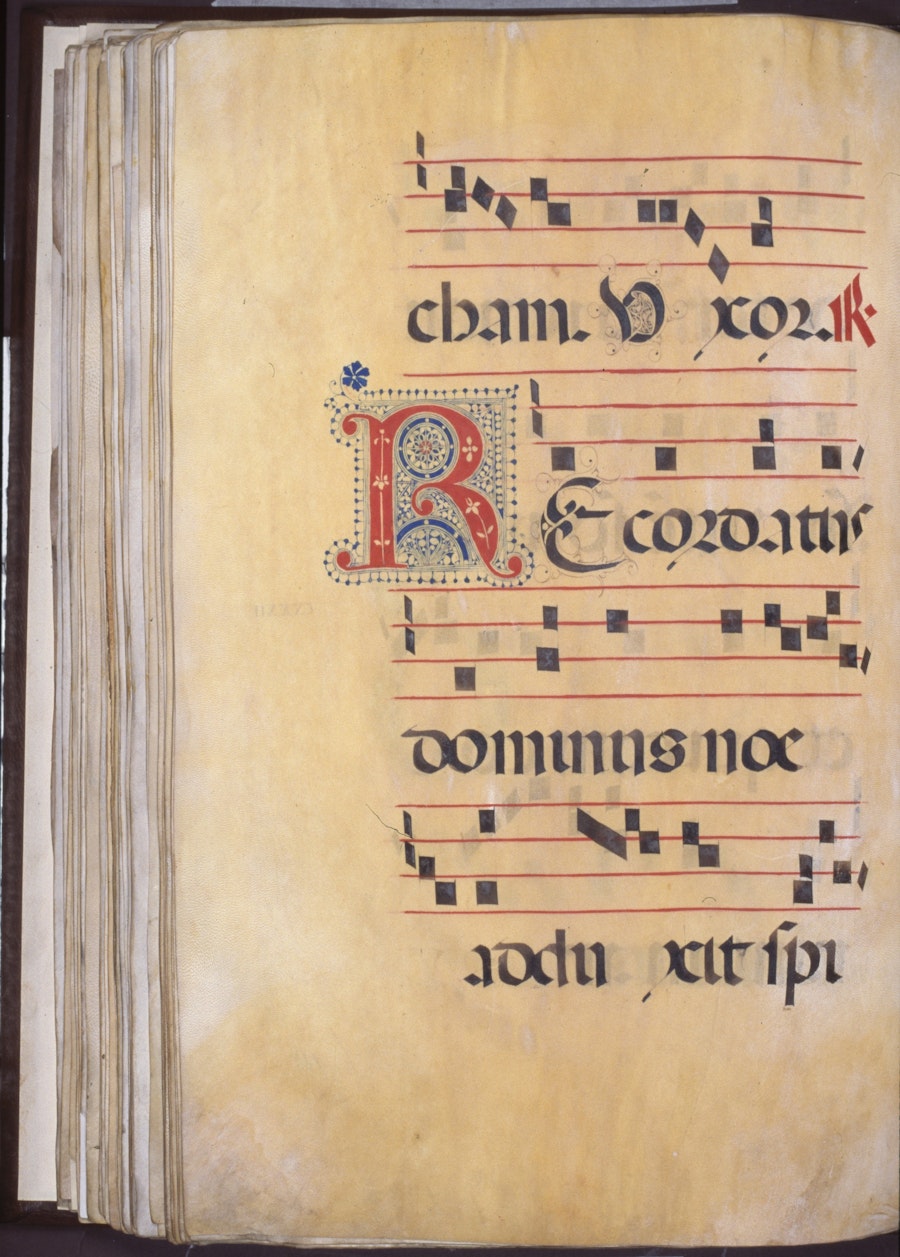 cham. V xor. R.
REcordatus
dominus noe
adduxit spi